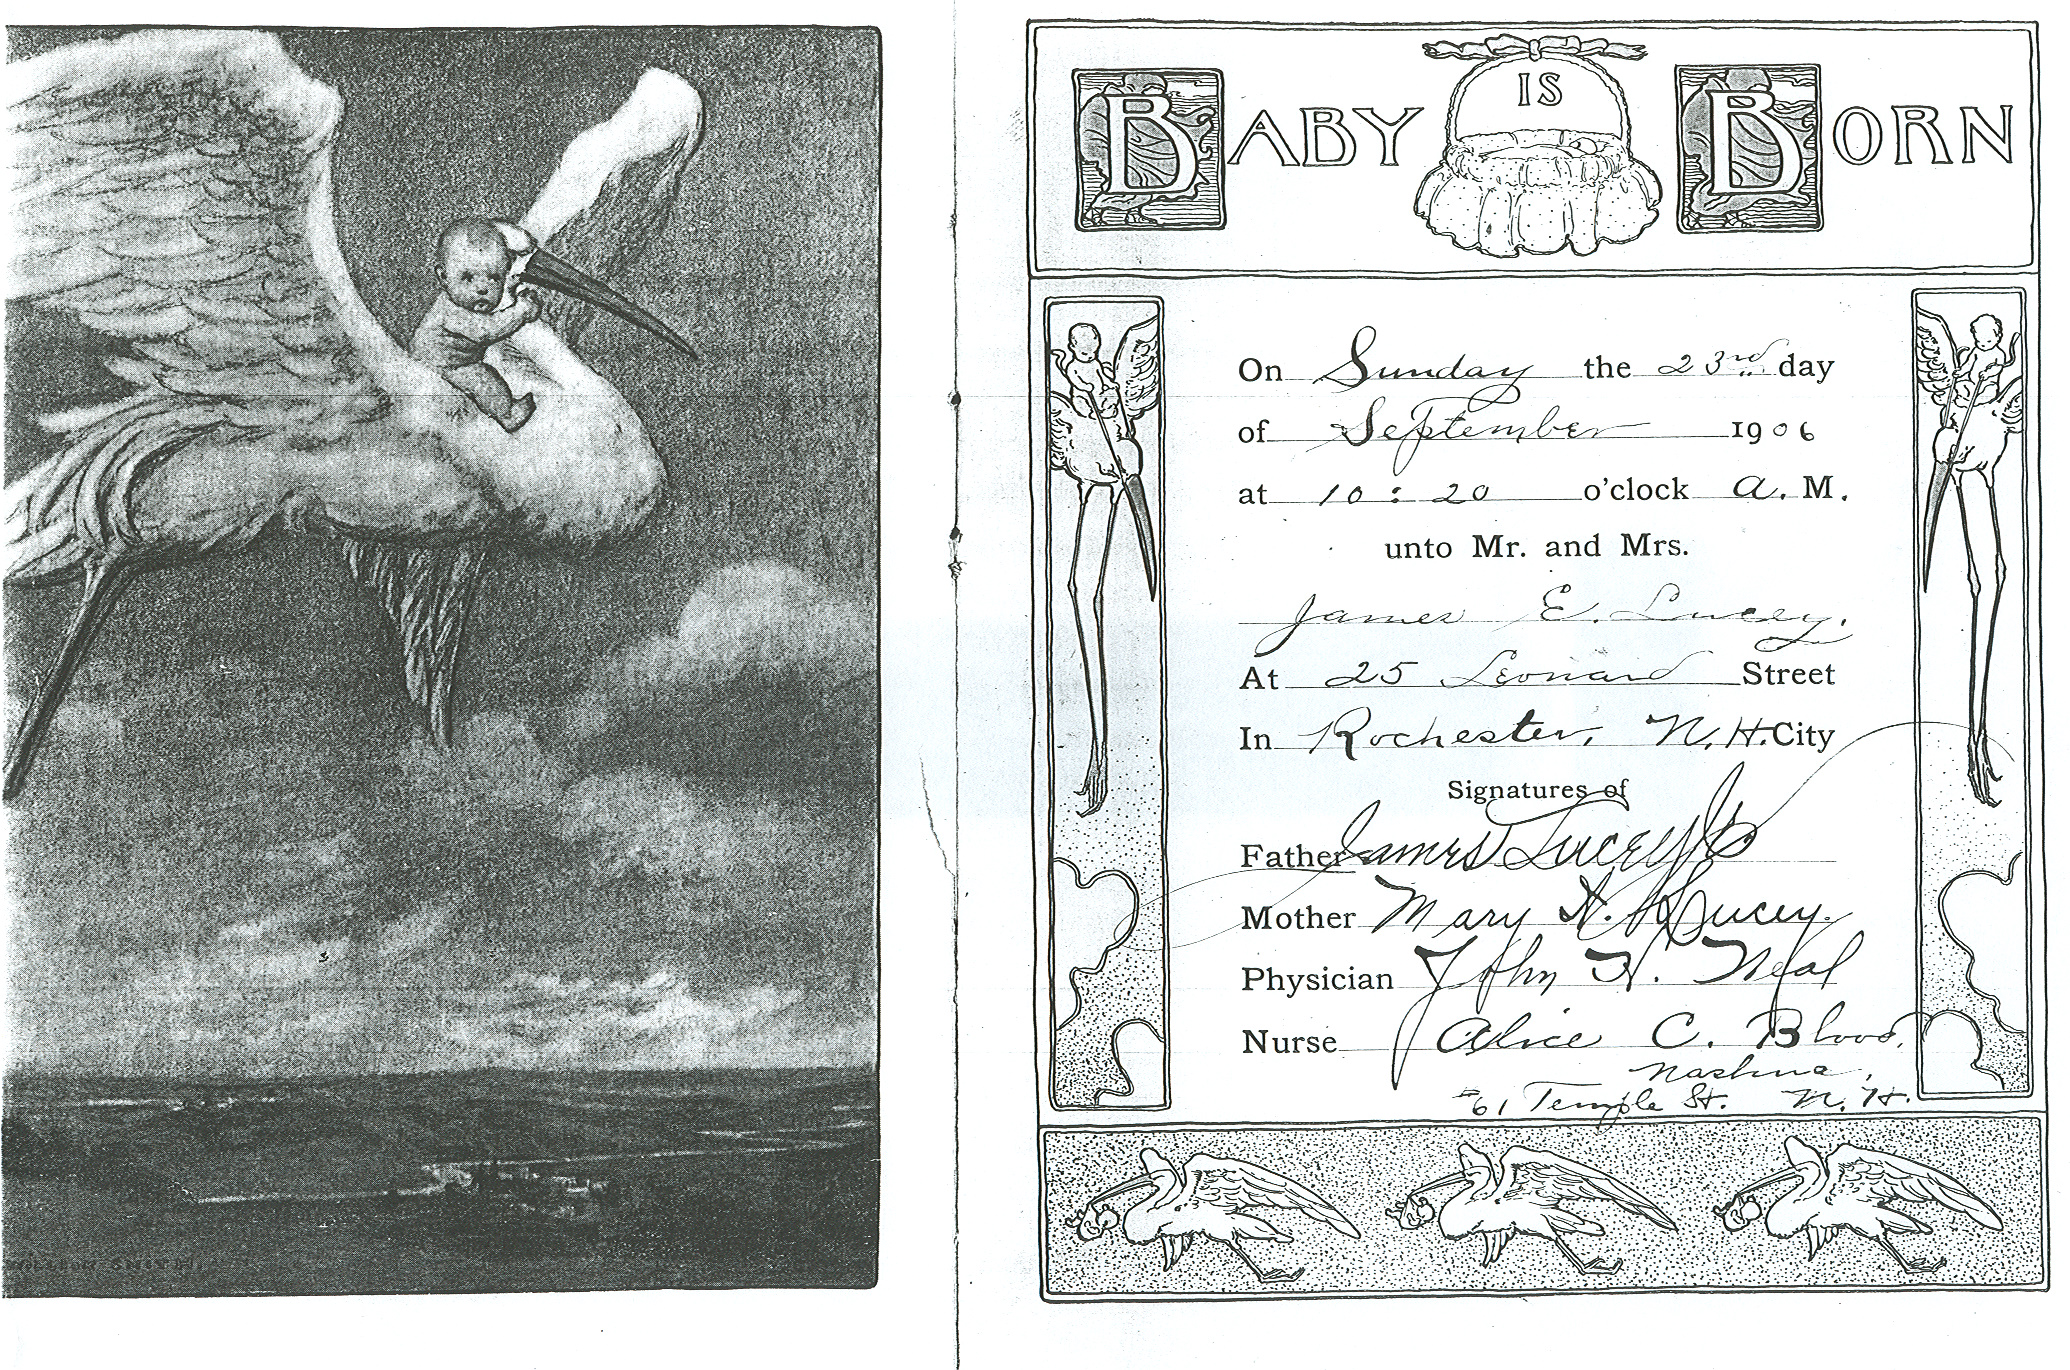 BABY IS BORN
On Sunday the 23rd day
of September 1906
at 10:20 o'clock A. M.
unto Mr. and Mrs.
James E. Lucey.
At 25 Leonard Street
In Rochester, N.H. City
Signatures of
Father James Lucey
Mother Mary N. Lucey.
Physician John H. Neal
Nurse Alice C. Blood,
Nashua,
#61 Temple St. N. H.
SMITH